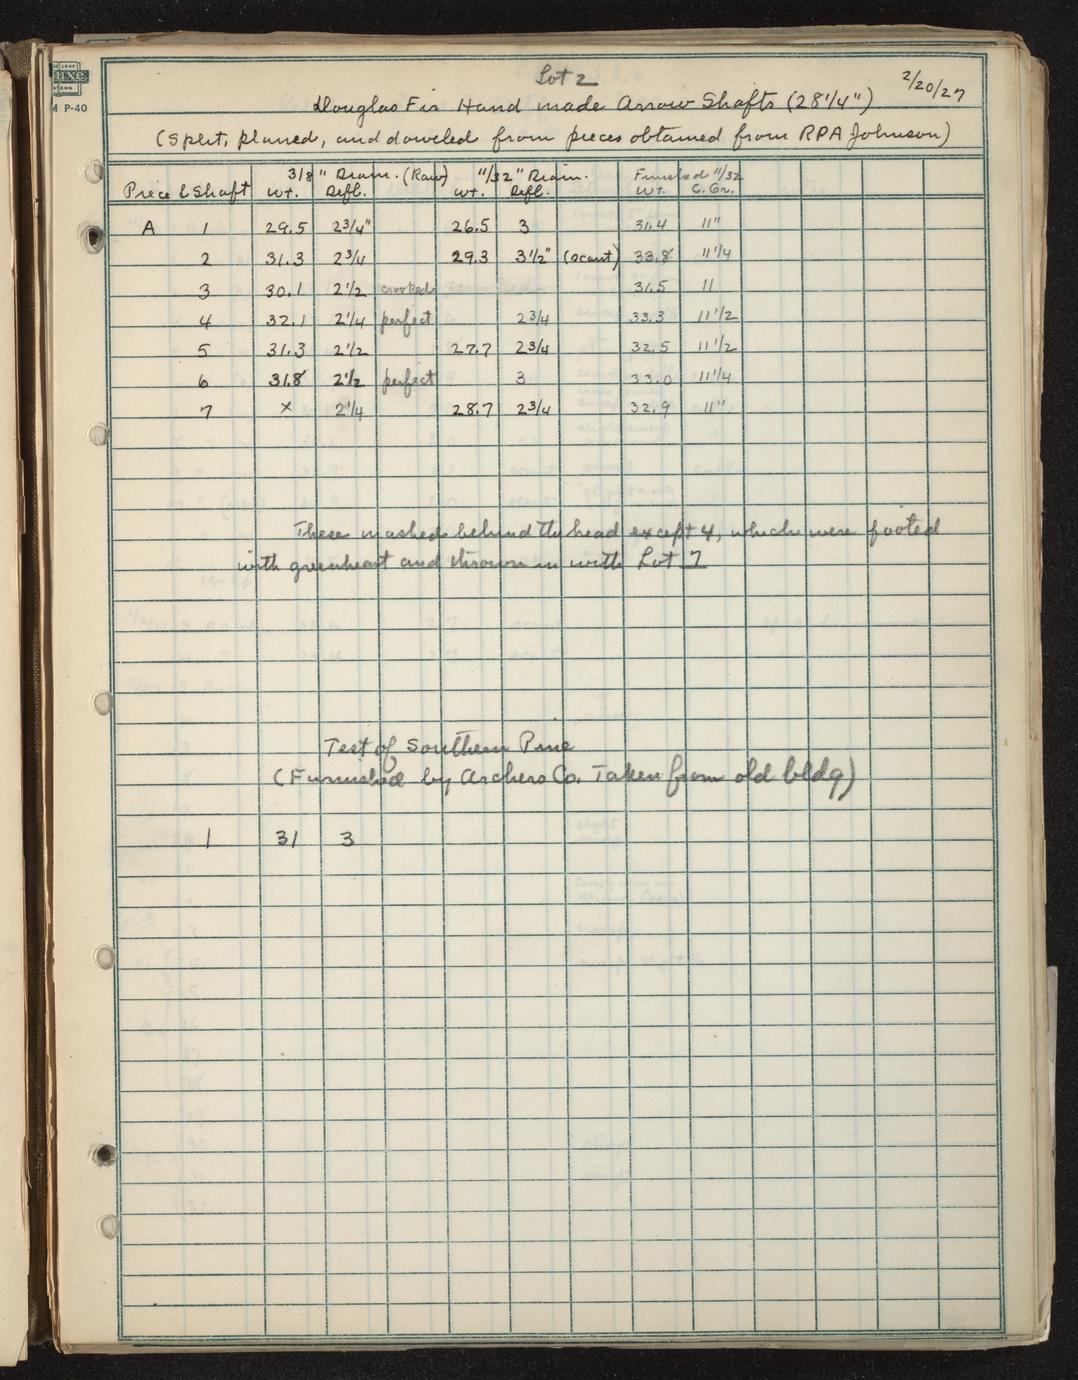 Lot 2
2/20/27
Douglas Fir Hand made Arrow Shafts (28 1/4")
(Split, planed, and doweled from pieces obtained from RPA Johnson)
3/8" Diam. (Raw) 11/32" Diam. Finished 11/32
Piece & Shaft Wt. Defl. Wt. Defl. Wt. C. Gr.
A 1 29.5 2 3/4" 26.5 3 31.4 11"
2 31.3 2 3/4 29.3 3 1/2" (scant) 33.8 11 1/4
3 30.1 2 1/2 crooked 31.5 11
4 32.1 2 1/4 perfect 2 3/4 33.3 11 1/2
5 31.3 2 1/2 27.7 2 3/4 32.5 11 1/2
6 31.8 2 1/2 perfect 3 33.0 11 1/4
7 x 2 1/4 28.7 2 3/4 32.9 11"
These mashed behind the head except 4, which were footed
with greenheart and thrown in with Lot 7
Test of Southern Pine
(Furnished by Archers Co. Taken from old bldg)
1 31 3
P-40